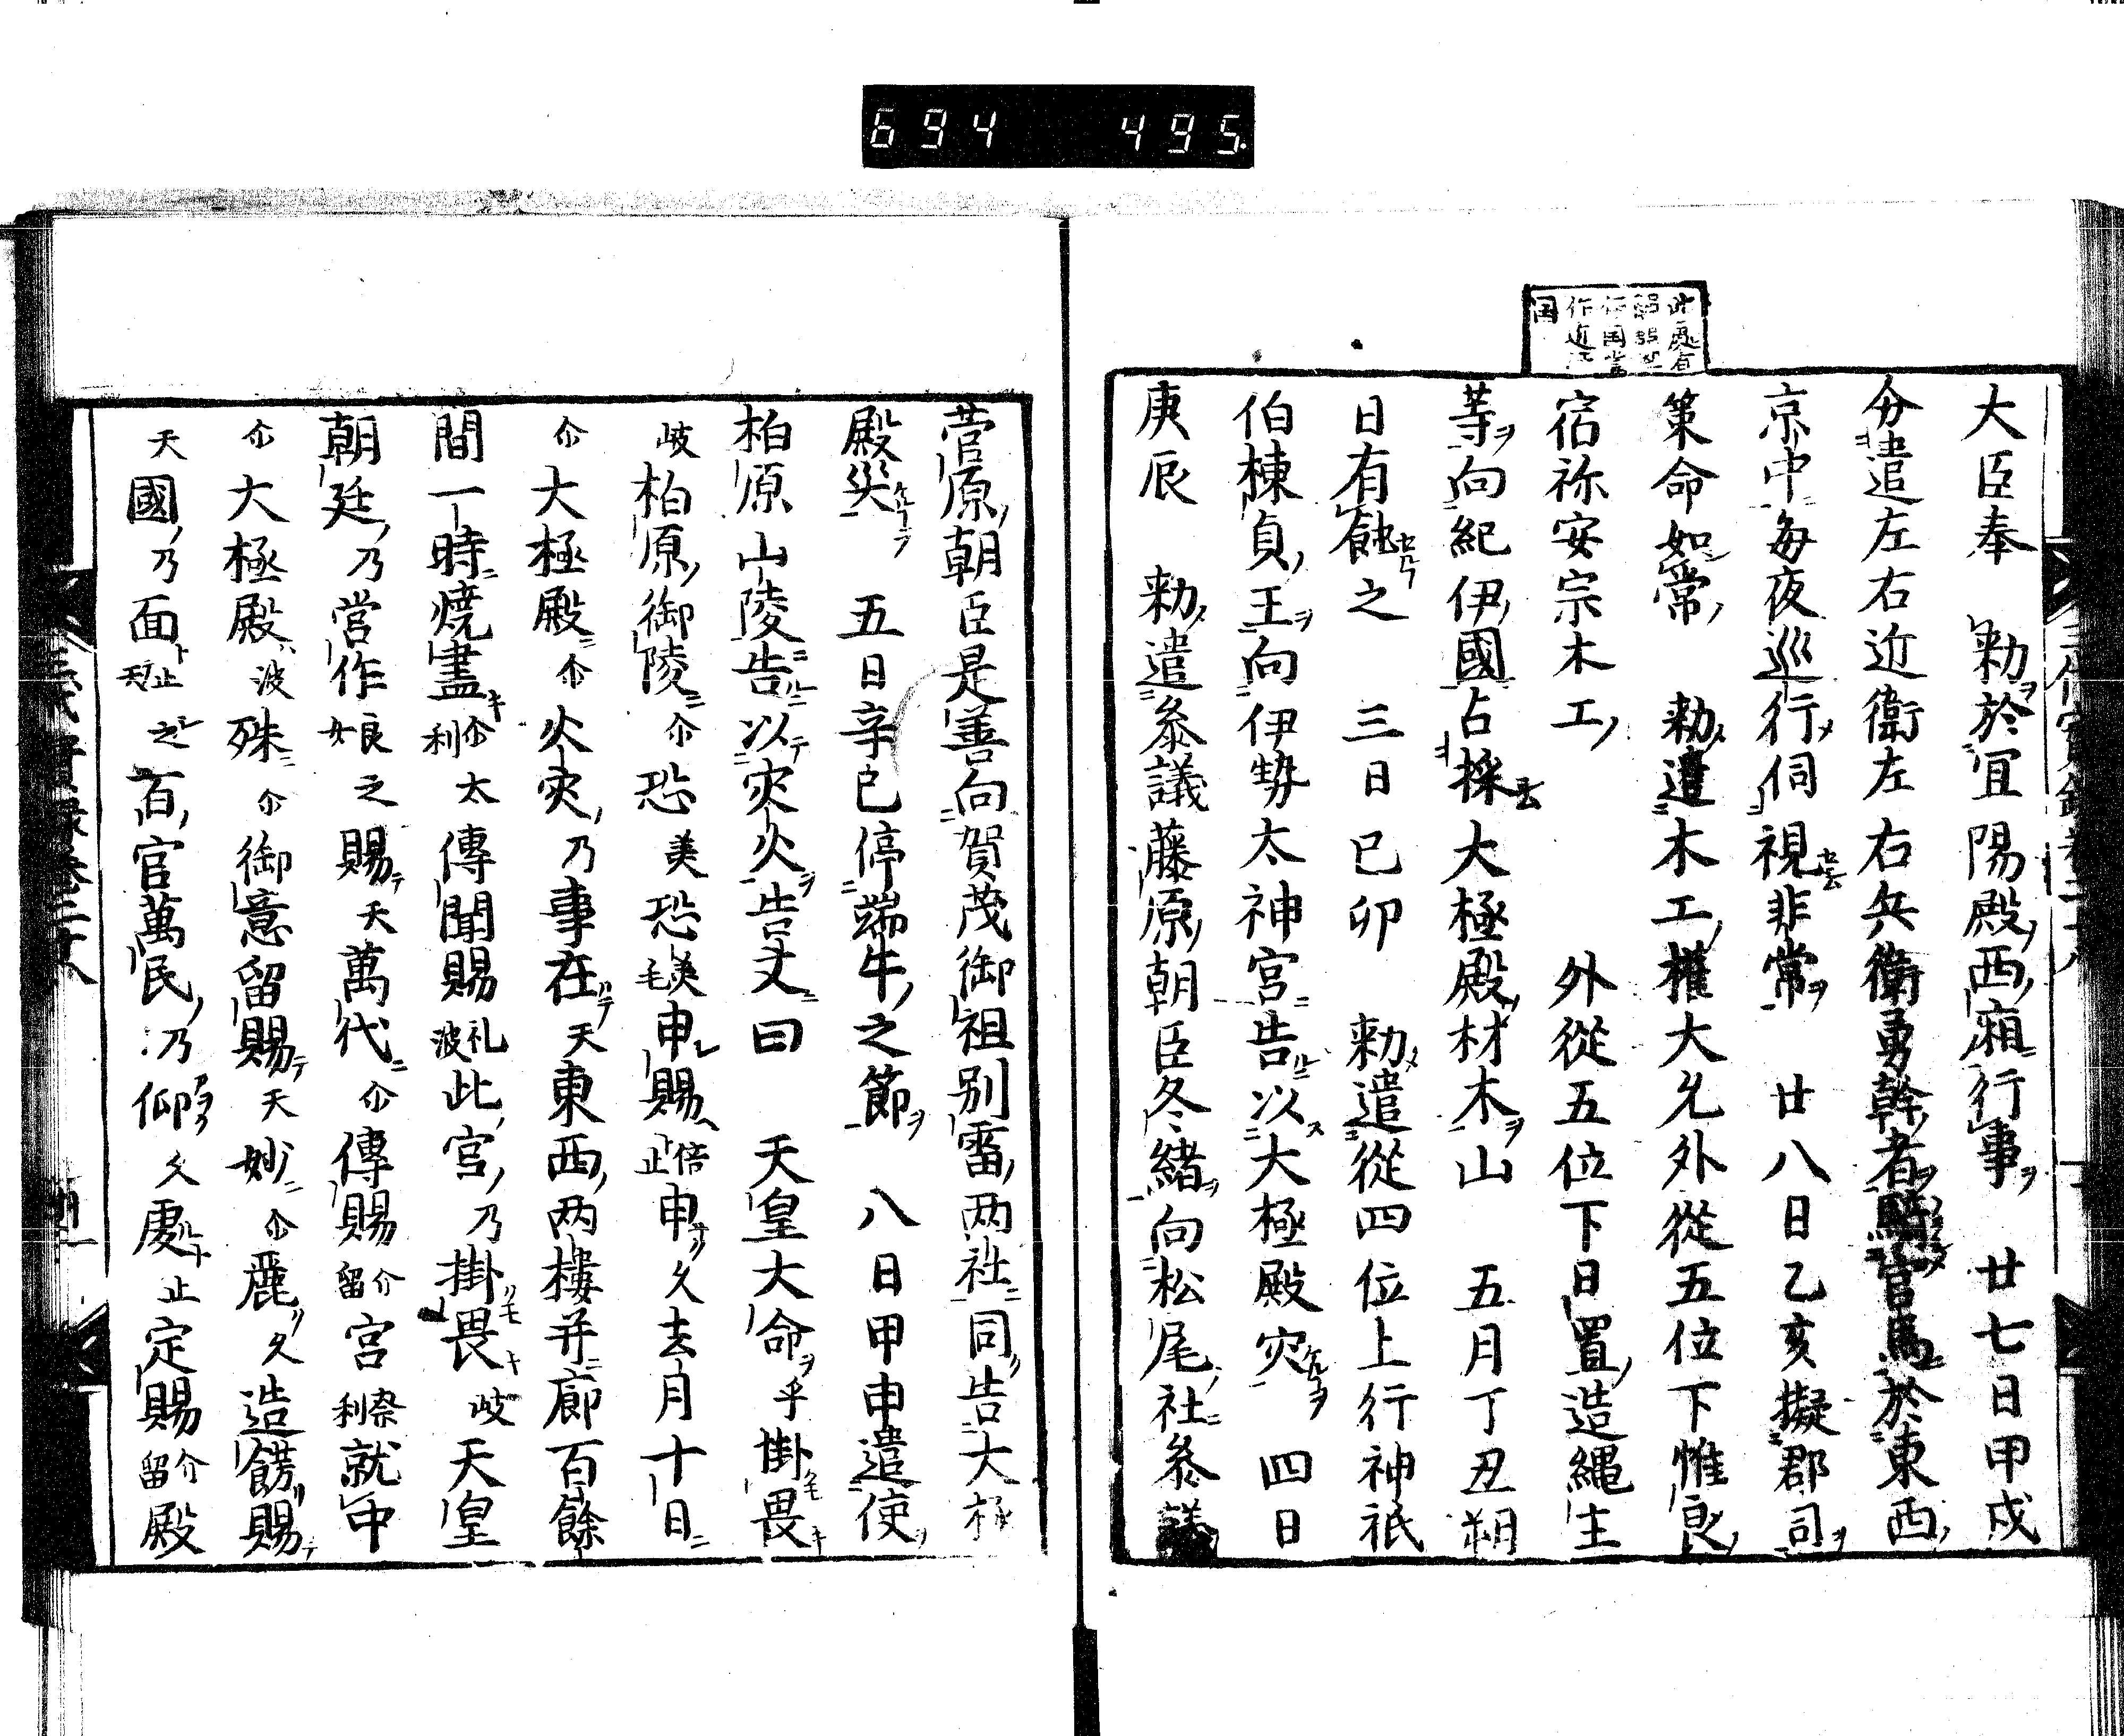 694 495
大臣奉 勅於宜陽殿西廂行事 廿七日甲戌
分遣左右近衛左右兵衛勇幹者騎官馬於東西
京中毎夜巡行伺視非常 廿八日乙亥擬郡司
策命如常 勅遣木工權大允外從五位下惟良
宿祢安宗木工 外從五位下日置造縄生
等向紀伊國占採大極殿材木山 五月丁丑朔
日有蝕之 三日己卯 勅遣從四位上行神祇
伯棟貞王向伊勢太神宮告以大極殿灾 四日
庚辰 勅遣叅議藤原朝臣冬緒向松尾社叅議
菅原朝臣是善向賀茂御祖別雷两社同告大極
殿災 五日辛巳停端午之節 八日甲申遣使
柏原山陵告以灾火告文曰 天皇大命乎掛畏
岐柏原御陵尒恐美恐美毛申賜倍止申久去月十日
尒大極殿尒火灾乃事在天東西两樓并廊百餘
間一時燒盡尒利太傳聞賜礼波此宮乃掛畏岐天皇
朝廷乃営作良女之賜天萬代尒傳賜介留宮奈利就中
尒大極殿波殊尒御意留賜天妙尒麗久造餝賜
天國乃面止之天百官萬民乃仰久處止定賜介留殿